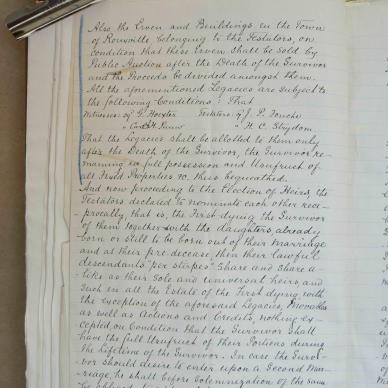 Also the Erven and Buildings in the Town
of Rouxville belonging to the Testators, on
condition that these Erven shall be Sold by
Public Auction after the Death of the Survivor
and the Proceeds be divided amongst them.
All the aforementioned Legacies are subject to
the following Conditions: That
Witnesses Testators J. P. Fouche
H. C. Strydom
That the Legacies shall be allotted to them only
after the Death of the Survivor, the Survivor re-
maining in full possession and Usufruct of
all Fixed Properties so thus bequeathed.
And now proceeding to the Election of Heirs, the
Testators declared to nominate each other reci-
procally, that is, the First dying the Survivor
of them together with the daughters, already
born or still to be born out of their marriage
and at their pre-decease, then their lawful
descendants "per stirpes" Share and Share a-
like as their Sole and universal heirs and
Such in all the Estate of the First dying with
the exception of the aforesaid Legacies, Movables
as well as Actions and Credits, nothing ex-
cepted on Condition that the Survivor Shall
have the full Usufruct of their Portions during
the lifetime of the Survivor. In case the Survi-
vor should desire to enter upon a Second Mar-
riage, he shall before Solemnization of the same
be obliged to